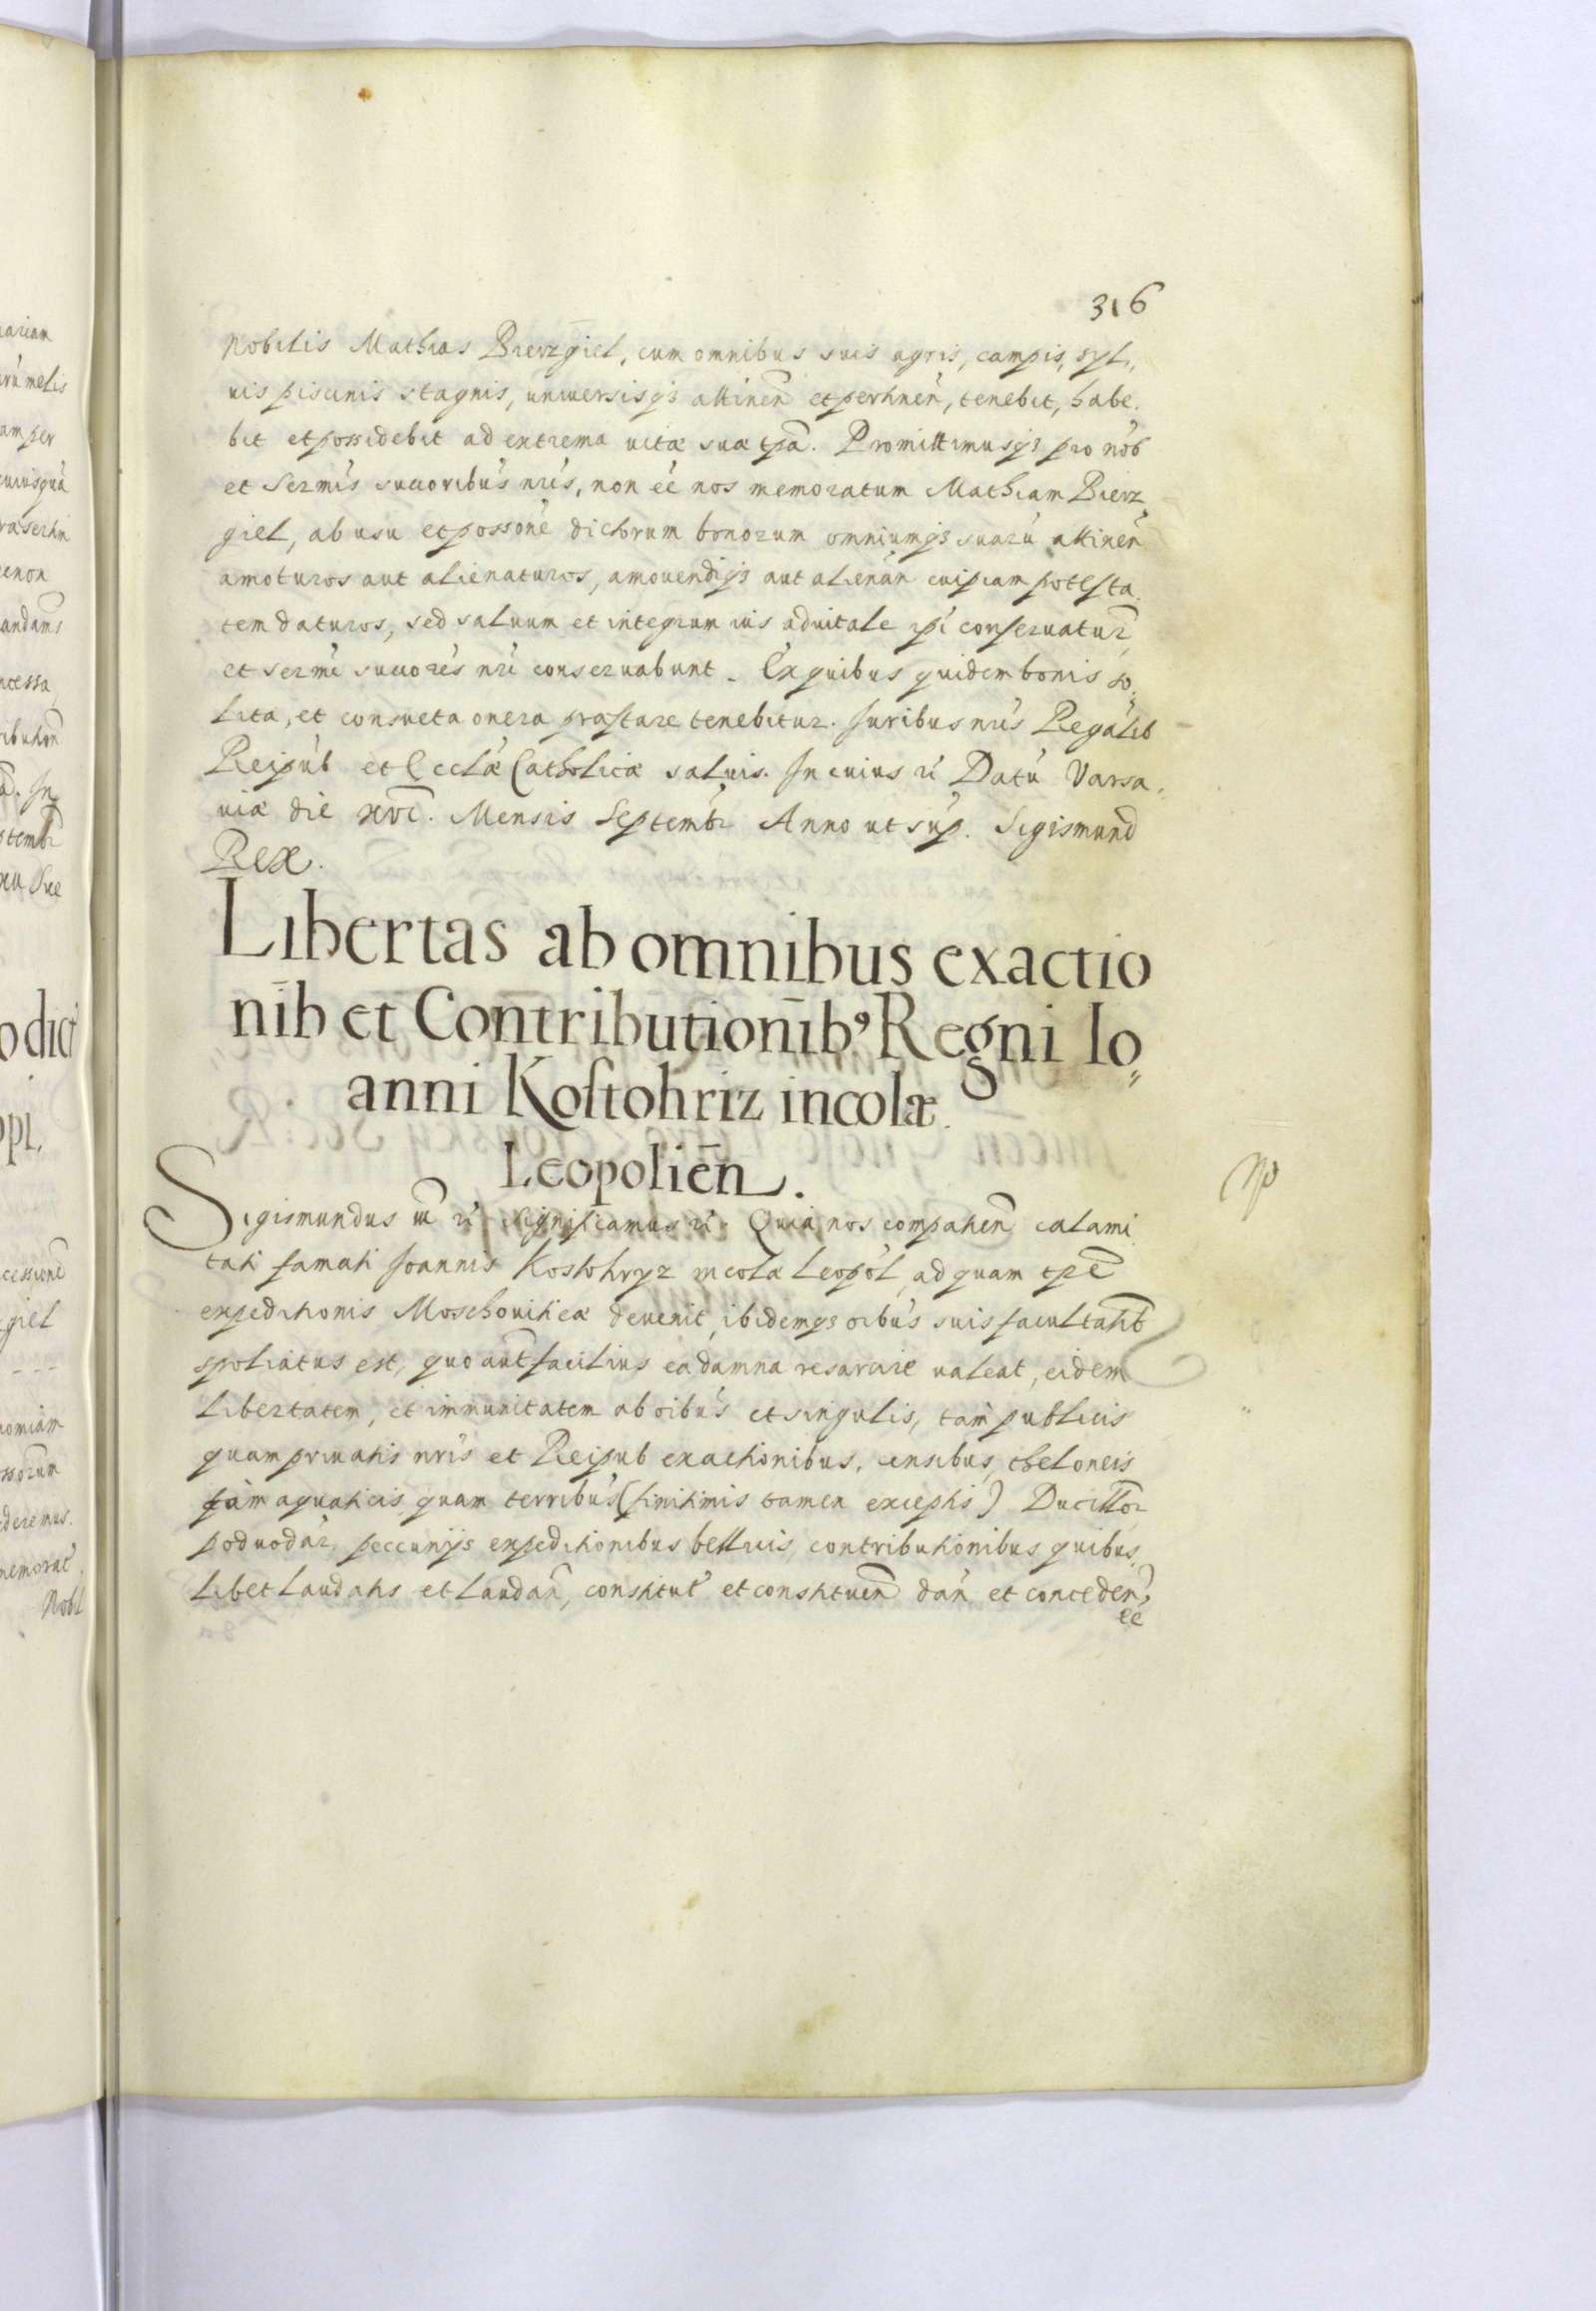 316
Nobilis Mathias Bierzgiel, cum omnibus suis agris, campis, syl„
uis piscinis stagnis, uniuersisqз attinen̄ et pertinen̄, tenebit, habe.
bit et possidebit ad extrema uitæ suæ tp̄a. Promittimusqз pro nob̄
et Sermis̄ succoribus̄ nris̄, non eē nos memoratum Mathiam Bierz„
giel, ab usu et possone̅ dictorum bonorum omniumqз suarū attinen̄
amoturos aut alienaturos, amouendiqз aut alienan̄ cuipiam potesta„
tem daturos, sed saluum et integrum ius aduitale ipi̅ conseruatur̄
et sermi̅ succores̄ nri̅ conseruabunt. Ex quibus quidem bonis so„
lita, et consueta onera præstare tenebitur. Iuribus nris̄ Regalib̄
Reipub̄ et Ecclǣ Catholicæ saluis. In cuius rei Datū Varsa„
uiæ die xvi. Mensis Septembr̄ Anno ut sup̄. Sigismund̄
Rex.
Libertas ab omnibus exactio
nib̄ et Contributionib⁹ Regni Io„
anni Kostohriz incolæ
Leopolien̄.
Sigismundus iii r̄ Significamus r̄. Quia nos compatien̄ calami„
tati famati Joannis Kostohryz incolæ Leopol̄, ad quam tp̄e
expeditionis Moschouiticæ deuenit, ibidemqз oibus̄ suis facultatib̄
spoliatus est, quo aut̄ facilius ea damna resarcire ualeat, eidem
libertatem, et immunitatem ab oibus̄ et singulis, tam publicis
quam priuatis nris̄ et Reipub̄ exactionibus, censibus, theloneis
tam aquaticis quam terribus̄ (finitimis tamen exceptis) Ducillor̄
poduodar̄, peccunijs expeditionibus bellicis, contributionibus quibus„
libet laudatis et laudan̄, constitut̄ et constituen̄ dan̄ et conceden̄,
ee